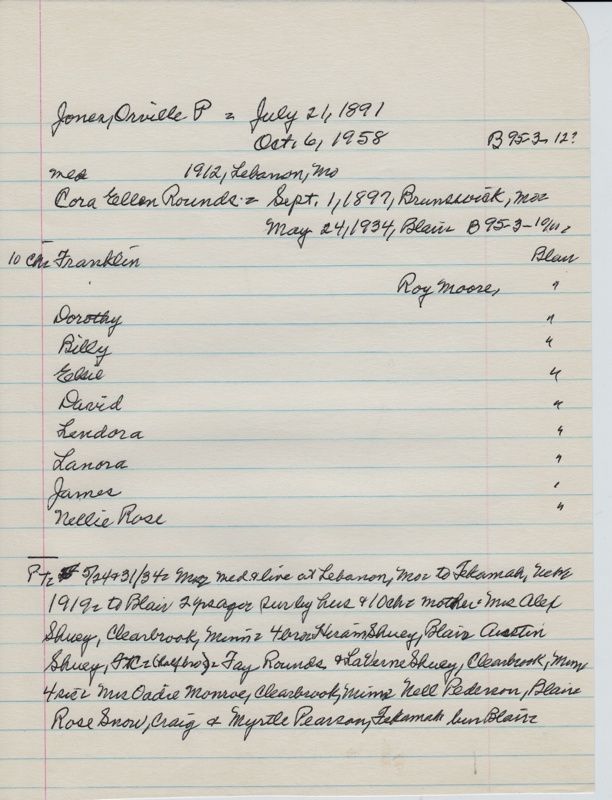 Jones, Orville P = July 21, 1891
Oct. 6, 1958 B 95-3- 12?
med 1912, Lebanon, Mo
Cora Ellen Rounds = Sept. 1, 1897, Brunswick, Mo=
May 24, 1934, Blair B 95-3-
10 ch= Franklin Blair
Roy Moore, "
Dorothy "
Billy "
Elsie "
David "
Lendora "
Lanora "
James "
Nellie Rose "
PT= 5/24&31/34= med & live at Lebanon, Mo= to Tekamah, Neb=
1919= to Blair 2 yrs ago= sur by hus & 10 ch= mother= Mrs Alex
Shuey, Clearbrook, Minn= 4 bro= Hiram Shuey, Blair Austin
Shuey, (half bro)= Fay Rounds & LaVerne Shuey, Clearbrook, Minn
4 sis= Mrs Oadie Monroe, Clearbrook, Minn= Nell Pederson, Blair=
Rose Snow, Craig & Myrtle Pearson, Tekamah bur Blair=